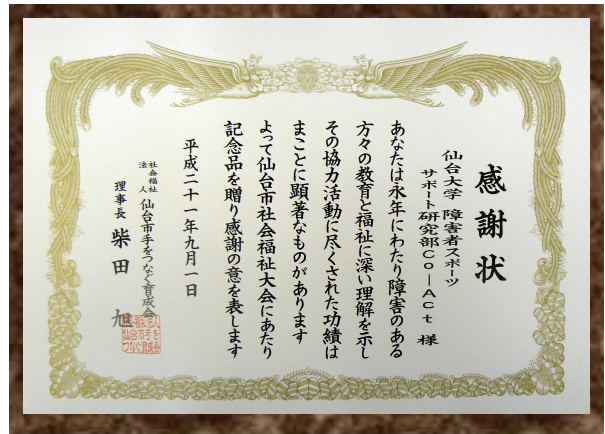 感謝状
仙台大学 障害者スポーツ
サポート研究部Co－Act 様
あなたは永年にわたり障害のある
方々の教育と福祉に深い理解を示し
その協力活動に尽くされた功績は
まことに顕著なものがあります
よって仙台市社会福祉大会にあたり
記念品を贈り感謝の意を表します
平成二十一年九月一日
社会福祉
法人
仙台市手をつなぐ育成会
理事長 柴田 旭
社会福祉法人
仙台市手を
つなぐ育成会